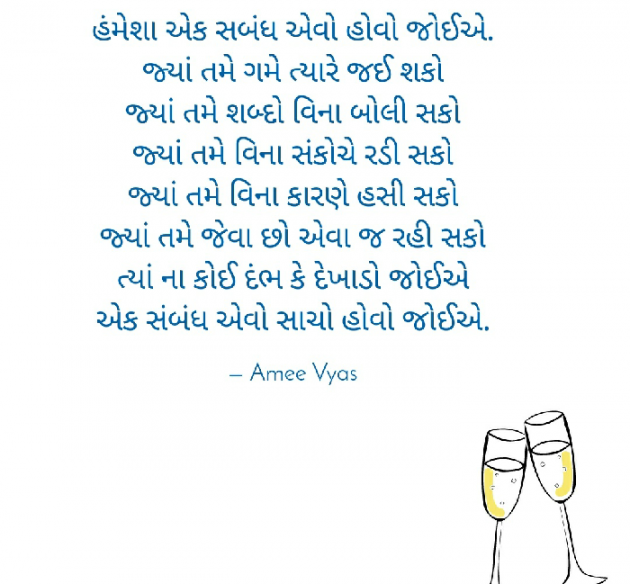 હંમેશા એક સબંધ એવો હોવો જોઈએ.
જ્યાં તમે ગમે ત્યારે જઈ શકો
જ્યાં તમે શબ્દો વિના બોલી સકો
જ્યાં તમે વિના સંકોચે રડી સકો
જ્યાં તમે વિના કારણે હસી સકો
જ્યાં તમે જેવા છો એવા જ રહી સકો
ત્યાં ના કોઈ દંભ કે દેખાડો જોઈએ
એક સંબંધ એવો સાચો હોવો જોઈએ.
– Amee Vyas